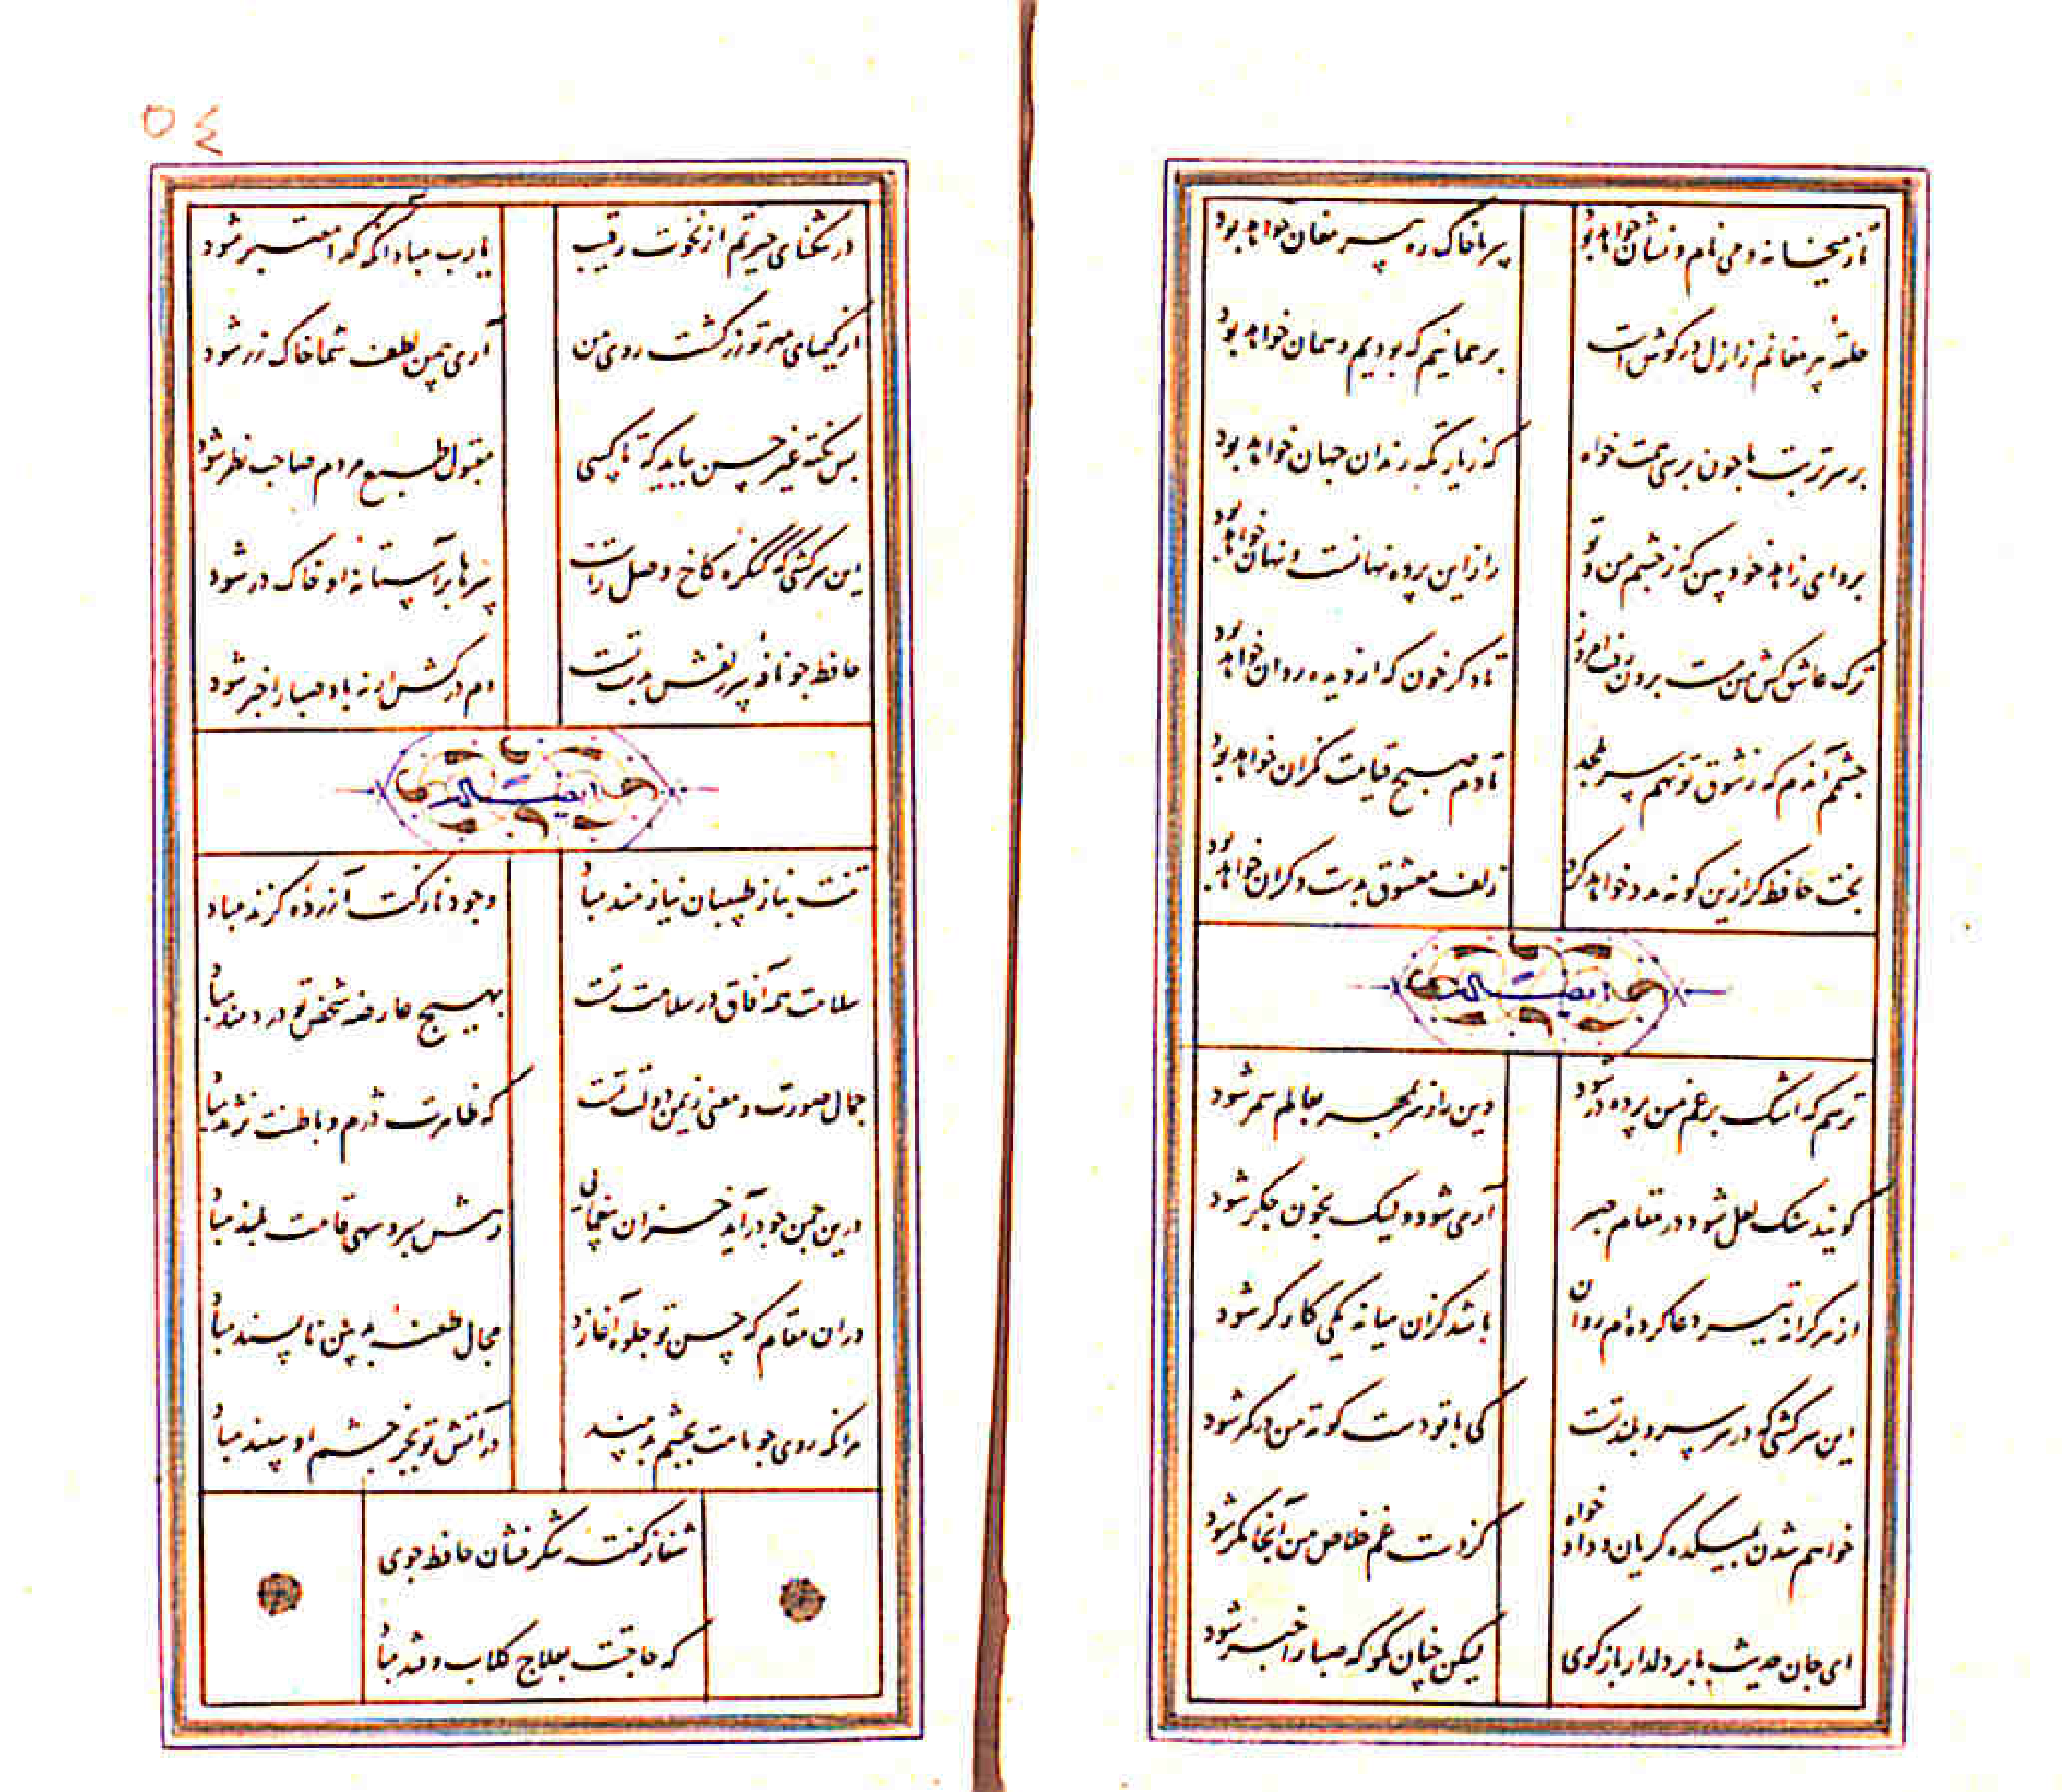 تا ز میخانه و می نام و نشان خواهد بود
سر ما خاک ره پیر مغان خواهد بود
حلقهٔ پیر مغانم ز ازل در گوش است
بر همانیم که بودیم و همان خواهد بود
بر سر تربت ما چون گذری همت خواه
که زیارتگه رندان جهان خواهد بود
برو ای زاهد خودبین که ز چشم من و تو
راز این پرده نهانست و نهان خواهد بود
ترک عاشق کش من مست برون رفت امروز
تا دگر خون که از دیده روان خواهد بود
چشمم آندم که ز شوق تو نهم سر بلحد
تا دم صبح قیامت نگران خواهد بود
بخت حافظ گر ازین گونه مدد خواهد کرد
زلف معشوق بدست دگران خواهد بود
ایضاله
ترسم که اشک بر غم من پرده در شود
وین راز سر بمهر بعالم سمر شود
گویند سنگ لعل شود در مقام صبر
آری شود ولیک بخون جگر شود
از هر کرانه تیر دعا کرده ام روان
باشد کزان میانه یکی کارگر شود
این سرکشی که در سر سرو بلند تست
کی با تو دست کوته من در کمر شود
خواهم شدن بمیکده گریان و دادخواه
کز دست غم خلاص من آنجا مگر شود
ای جان حدیث ما بر دلدار بازگوی
لیکن چنان مگو که صبا را خبر شود
٥٤
در تنگنای حیرتم از نخوت رقیب
یارب مباد آنکه گدا معتبر شود
از کیمیای مهر تو زر گشت روی من
آری بیمن لطف شما خاک زر شود
بس نکته غیر حسن بباید که تا کسی
مقبول طبع مردم صاحب نظر شود
این سرکشی که کنگره کاخ وصل راست
سرها بر آستانه او خاک در شود
حافظ چو نافه سر زلفش بدست تست
دم درکش ار نه باد صبا را خبر شود
ایضاله
تنت بناز طبیبان نیازمند مباد
وجود نازکت آزرده گزند مباد
سلامت همه آفاق در سلامت تست
بهیچ عارضه شخص تو دردمند مباد
جمال صورت و معنی ز یمن دولت تست
که ظاهرت دژم و باطنت نژند مباد
درین چمن چو درآید خزان بیغمایی
رهش بسرو سهی قامت بلند مباد
در ان مقام که حسن تو جلوه آغازد
مجال طعنه بدبین ناپسند مباد
هر آنکه روی چو ماهت بچشم بد بیند
در آتش تو بجز چشم او سپند مباد
شفا ز گفته شکرفشان حافظ جوی
که حاجتت بعلاج گلاب و قند مباد